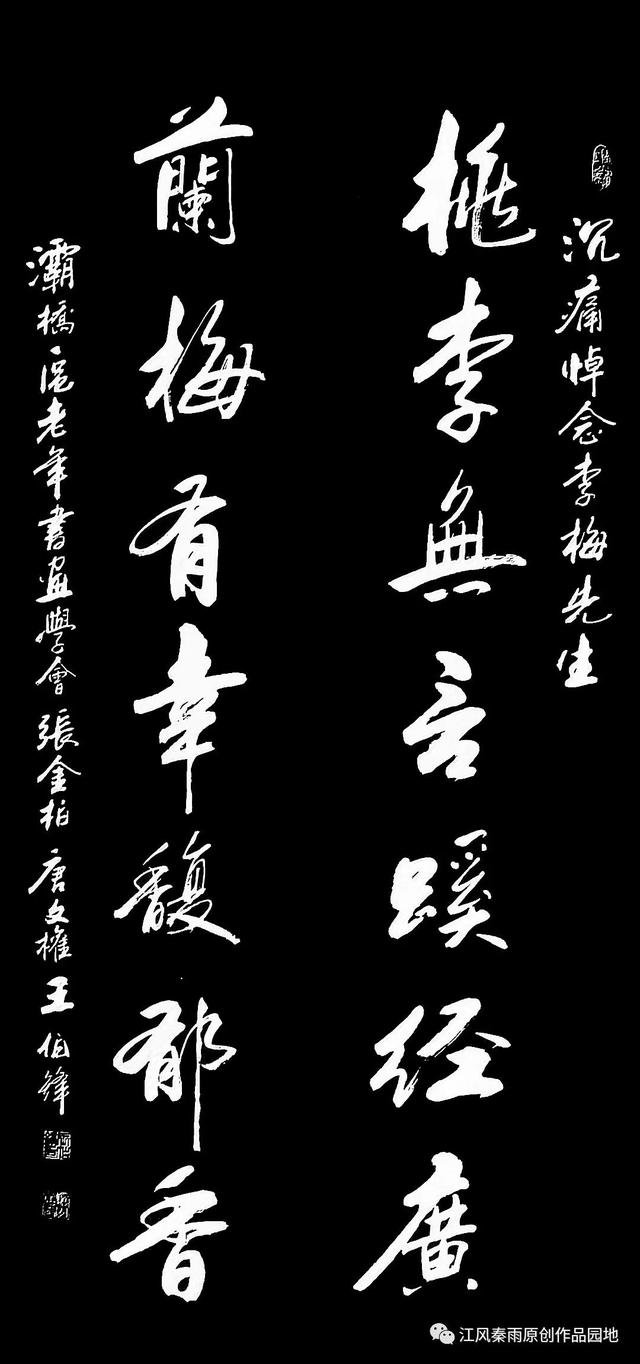 沉痛悼念李梅先生
桃李無言蹊经廣
蘭梅有幸馥郁香
灞橋區老年書畫學會 張金柏 唐文權 王伯鋒
江风秦雨原创作品园地